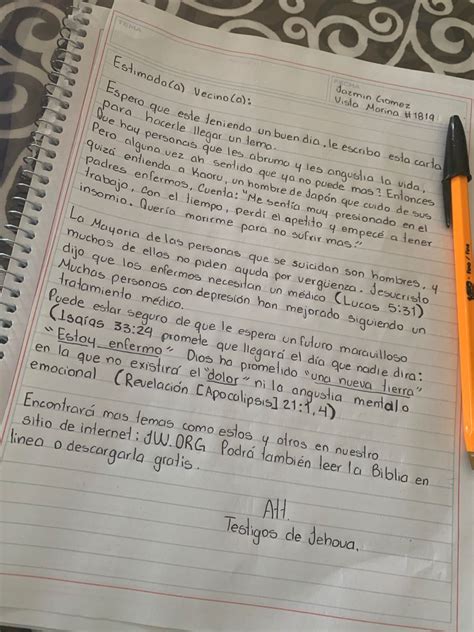 TEMA
FECHA
Jazmin Gomez
Vista Marina #1819
Estimado(a) Vecino(a):
Espero que este teniendo un buen dia, le escribo esta carta
para hacerle llegar un tema.
Que hay personas que les abruma y les angustia la vida,
Pero alguna vez ah sentido que ya no puede mas? Entonces
quizá entienda a Kaoru, un hombre de Japón que cuido de sus
padres enfermos, Cuenta: "Me sentía muy presionado en el
trabajo, Con el tiempo, perdí el apetito y empecé a tener
insomio. Quería morirme para no sufrir mas."
La Mayoria de las personas que se suicidan son hombres, y
muchos de ellos no piden ayuda por vergüenza. Jesucristo
dijo que los enfermos necesitan un médico (Lucas 5:31)
Muchas personas con depresión han mejorado siguiendo un
tratamiento médico.
Puede estar seguro de que le espera un futuro maravilloso
(Isaías 33:24 promete que llegará el día que nadie dira:
"Estoy enfermo" Dios ha prometido "una nueva tierra"
en la que no existirá el "dolor" ni la angustia mental o
emocional (Revelación [Apocalipsis] 21:1,4)
Encontrará mas temas como estos y otros en nuestro
sitio de internet: JW.ORG Podrá también leer la Biblia en
linea o descargarla gratis.
Att.
Testigos de Jehova.